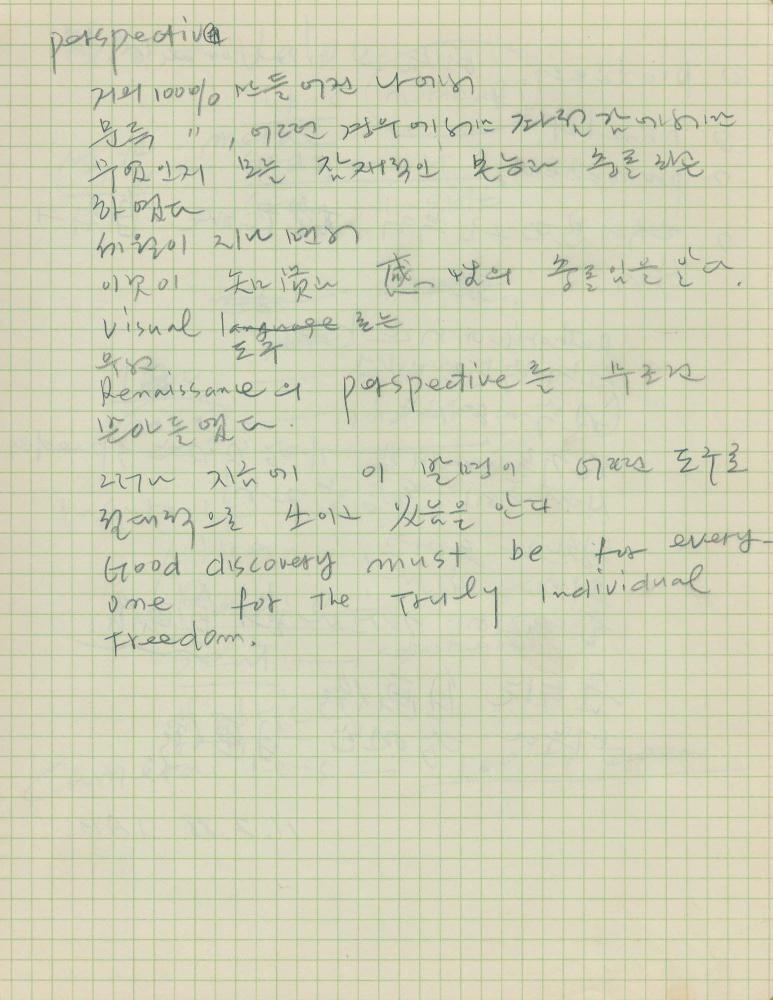 perspective
거의 100% 만들어진 나에게
문득 〃, 어떠한 경우에서는 절대감에서는
무엇인지 모를 잠재적인 본능과 충돌하곤
하였다
세월이 지나면서
이것이 知識과 感性의 충돌임을 안다.
visual language 로는
도구
Renaissance의 perspective를 무조건
받아들였다.
그러나 지금에 이 발명이 어떠한 도구로
절대적으로 쓰이고 있음을 안다
Good discovery must be for every-
one for the truly individual
freedom.